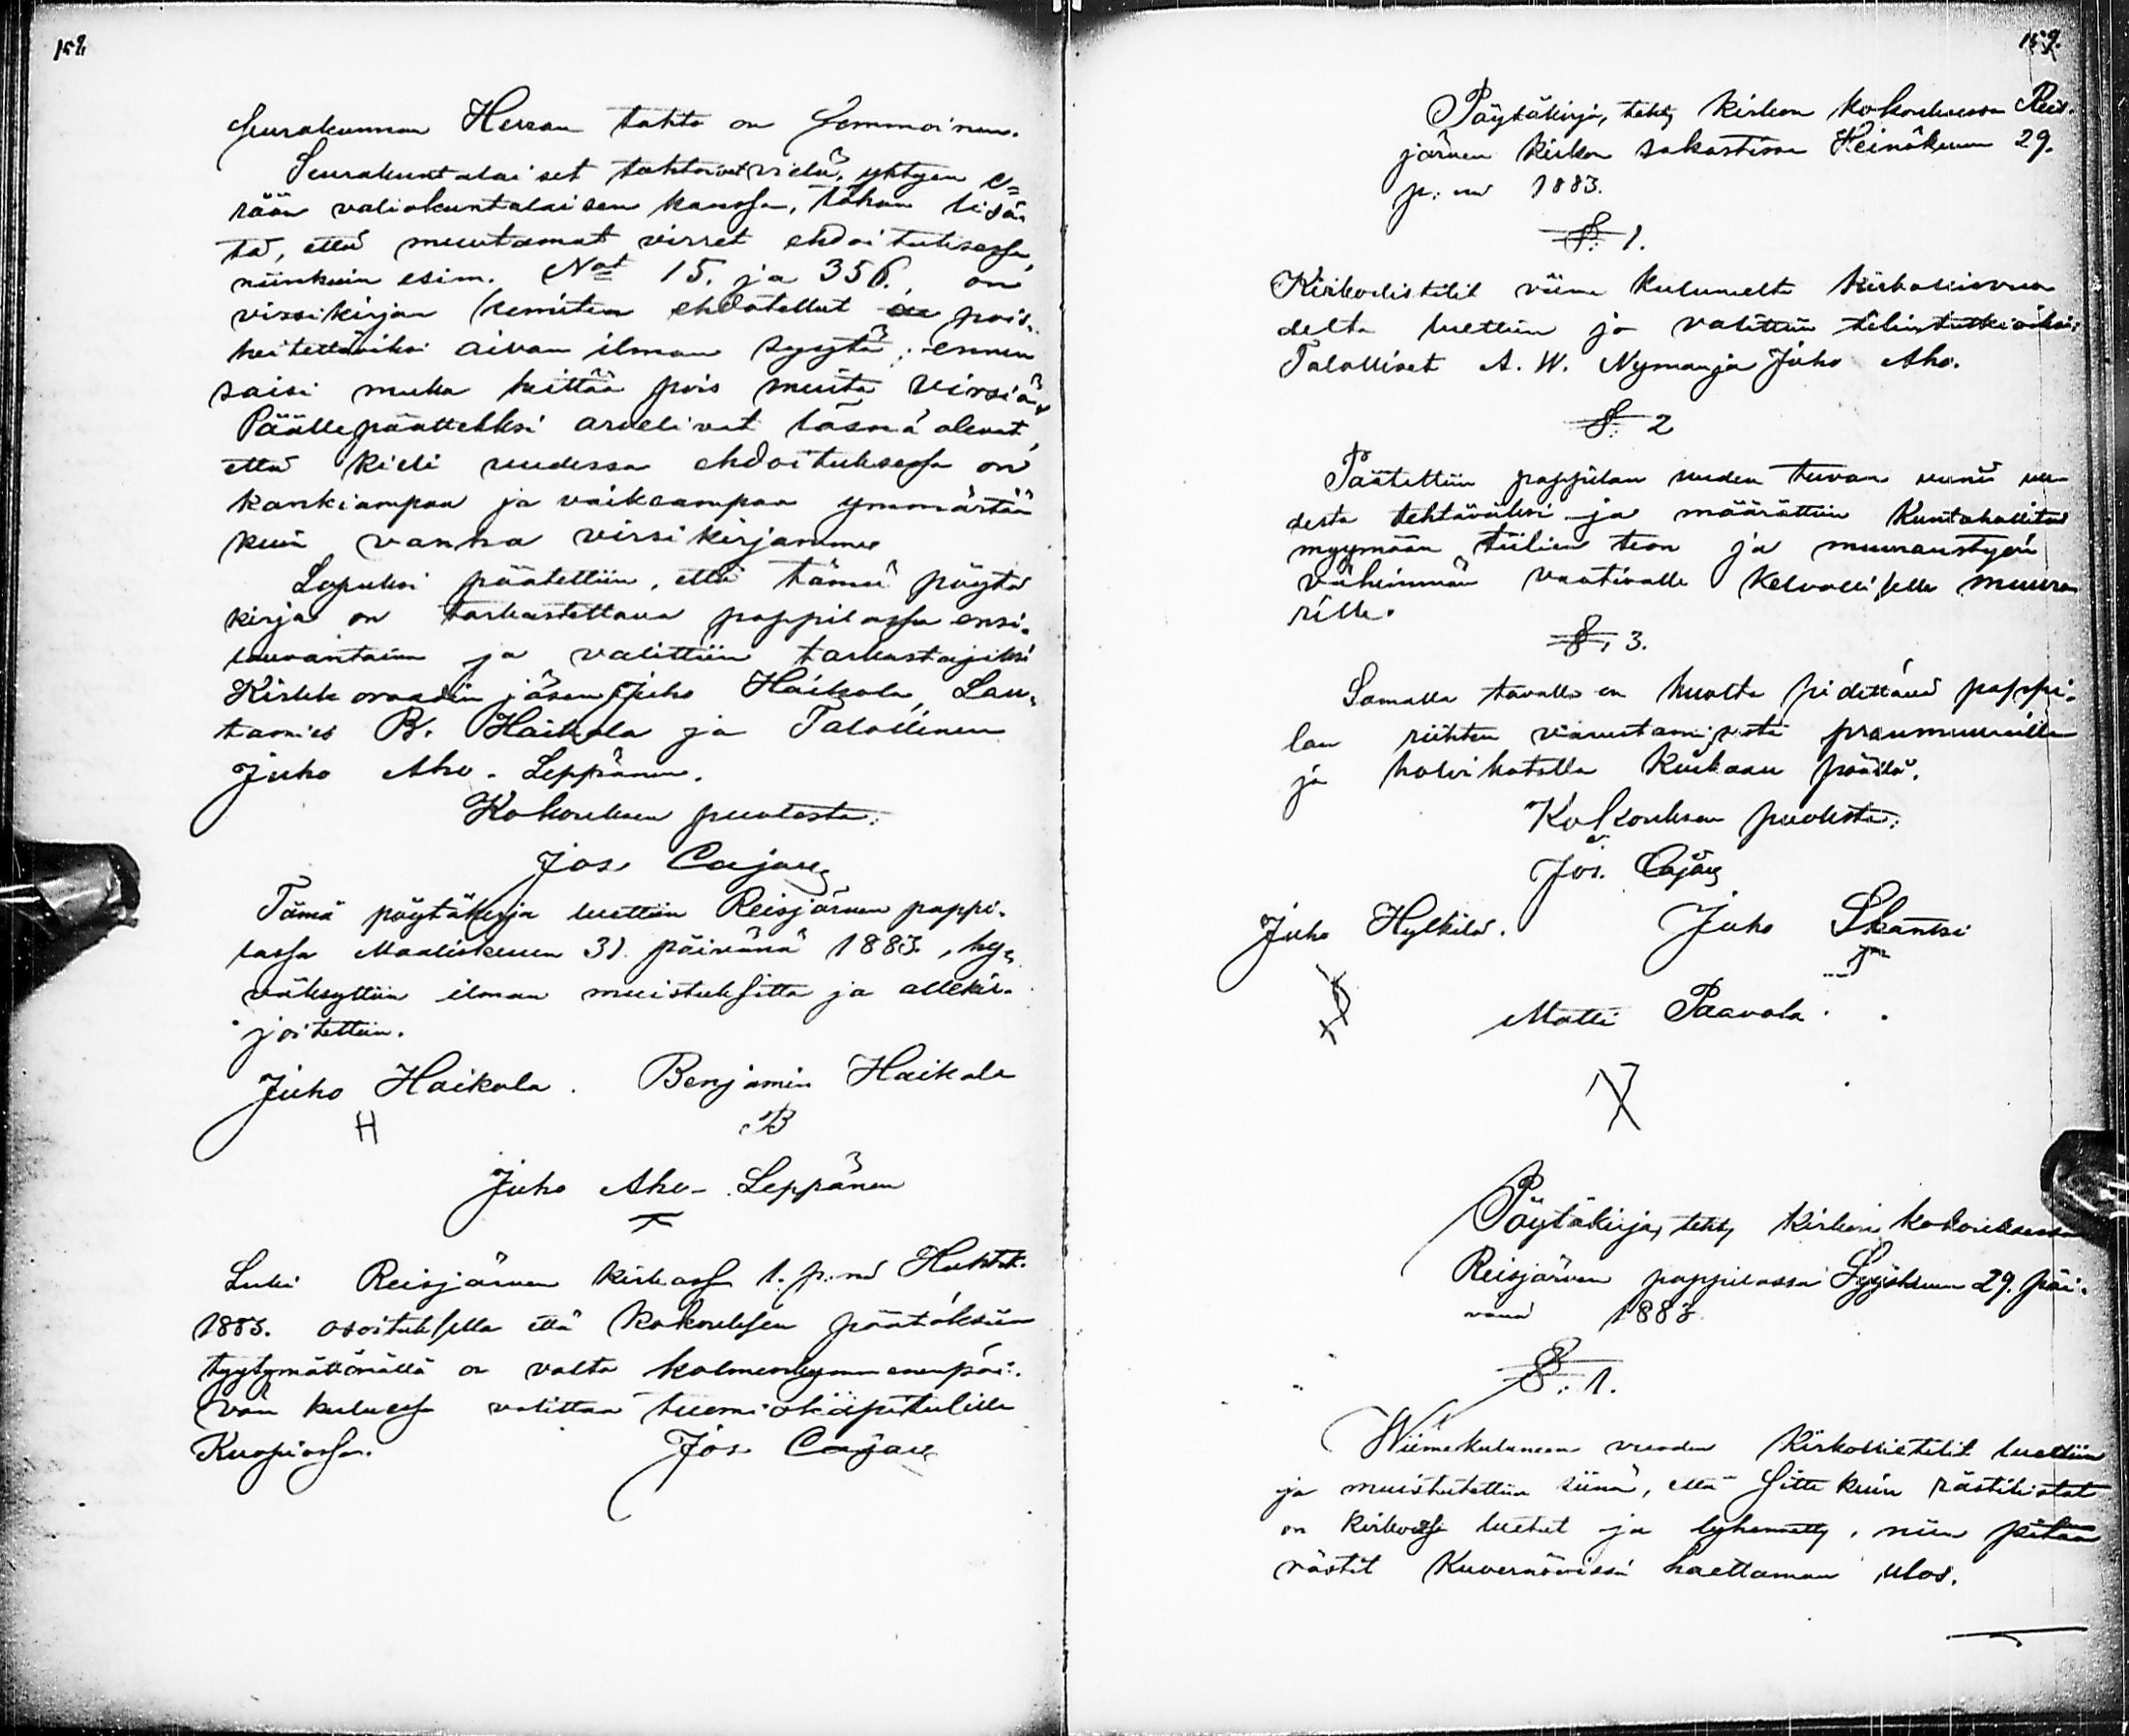 158.
seurakunnan Herran tahto on semmoinen.
Seurakuntalaiset tahtoivat vielä, yhtyen e=
rään valiokuntalaisen kanssa, tähän lisä-
tä, että muutamat virret ehdoituksessa,
niinkuin esim. Not 15. ja 356., on
virsikirjan komitea ehdotellut pois-
heitettäviksi aivan ilman syytä; ennen
saisi muka heittää pois muita virsiä.
Päällepäätteeksi arvelivat läsnä olevat,
että kieli uudessa ehdoituksessa on
kankiampaa ja vaikeampaa ymmärtää
kuin vanha virsikirjamme
Lopuksi päätettiin, että tämä pöytä
kirja on tarkastettava pappilassa ensi-
lauvantaina ja valittiin tarkastajiksi
Kirkkoraadin jäsen Juho Haikola, Lau-
tamies B. Haikola ja Talollinen
Juho Aho-Leppänen.
Kokouksen puolesta:
Jos. Cajan
Tämä pöytäkirja luettiin Reisjärven pappi-
lassa Maaliskuun 31 päivänä 1883., hy-
väksyttiin ilman muistuksitta ja allekir-
joitettiin.
Juho Haikola. Benjamin Haikola
H B
Juho Aho-Leppänen
Luki Reisjärven kirkossa 1. p:nä Huhtik.
1883. osoituksella että kokouksen päätöksiin
tyytymättömällä on valta kolmenkymmenenpäi-
vän kuluessa valittaa tuomiokapitulille
Kuopiossa. Jos. Cajan
159.
Pöytäkirja, tehty kirkon kokouksessa Reis-
järven kirkon sakastissa Heinäkuun 29.
p:nä 1883.
§. 1.
Kirkollistilit viime kuluneelta kirkollisvuo
delta luettiin ja valittiin tilintutkioiksi:
Talolliset A. W. Nyman ja Juho Aho.
§. 2
Päätettiin pappilan uuden tuvan uuni uu
desta tehtäväksi ja määrättiin Kuntahallitus
myymään tiilien teon ja muuraustyön
vähimmän vaativalle kelvolliselle muura
rille.
§. 3.
Samalla tavalla on huolta pidettävä pappi-
lan riihten varustamisesta
ja holvikatolla kiukaan päällä.
Kokouksen puolesta:
Jos. Cajan
Juho Hylkilä. Juho Skantsi
Matti Paavola.
Pöytäkirja, tehty kirkon kokouksessa
Reisjärven pappilassa Syyskuun 29. päi-
vänä 1883
§. 1.
Wiimekuluneen vuoden Kirkollistilit luettiin
ja muistutettiin siinä, että sitte kuin rästilistat
on kirkossa luetut ja lyhennetty, niin pitää
rästit Kuvernöörissä haettaman ulos.